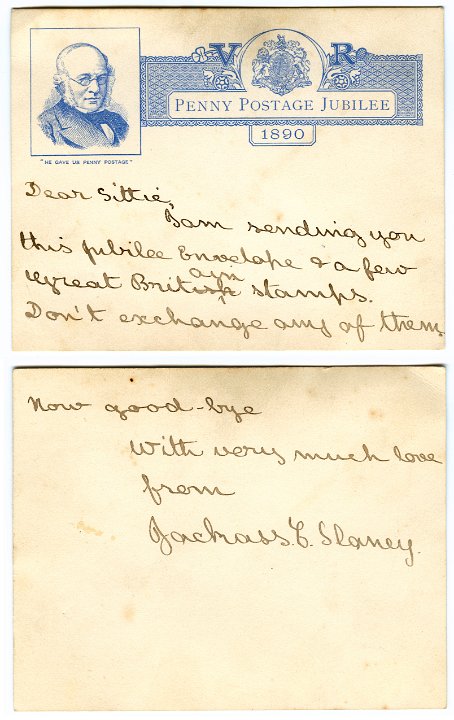 V R
PENNY POSTAGE JUBILEE
1890
"HE GAVE US PENNY POSTAGE"
Dear Sittie,
I am sending you
this Jubilee Envelope & a few
ain
Great British stamps.
Don't exchange any of them.
Now good-bye
With very much love
from
Jackass. C. Slaney.